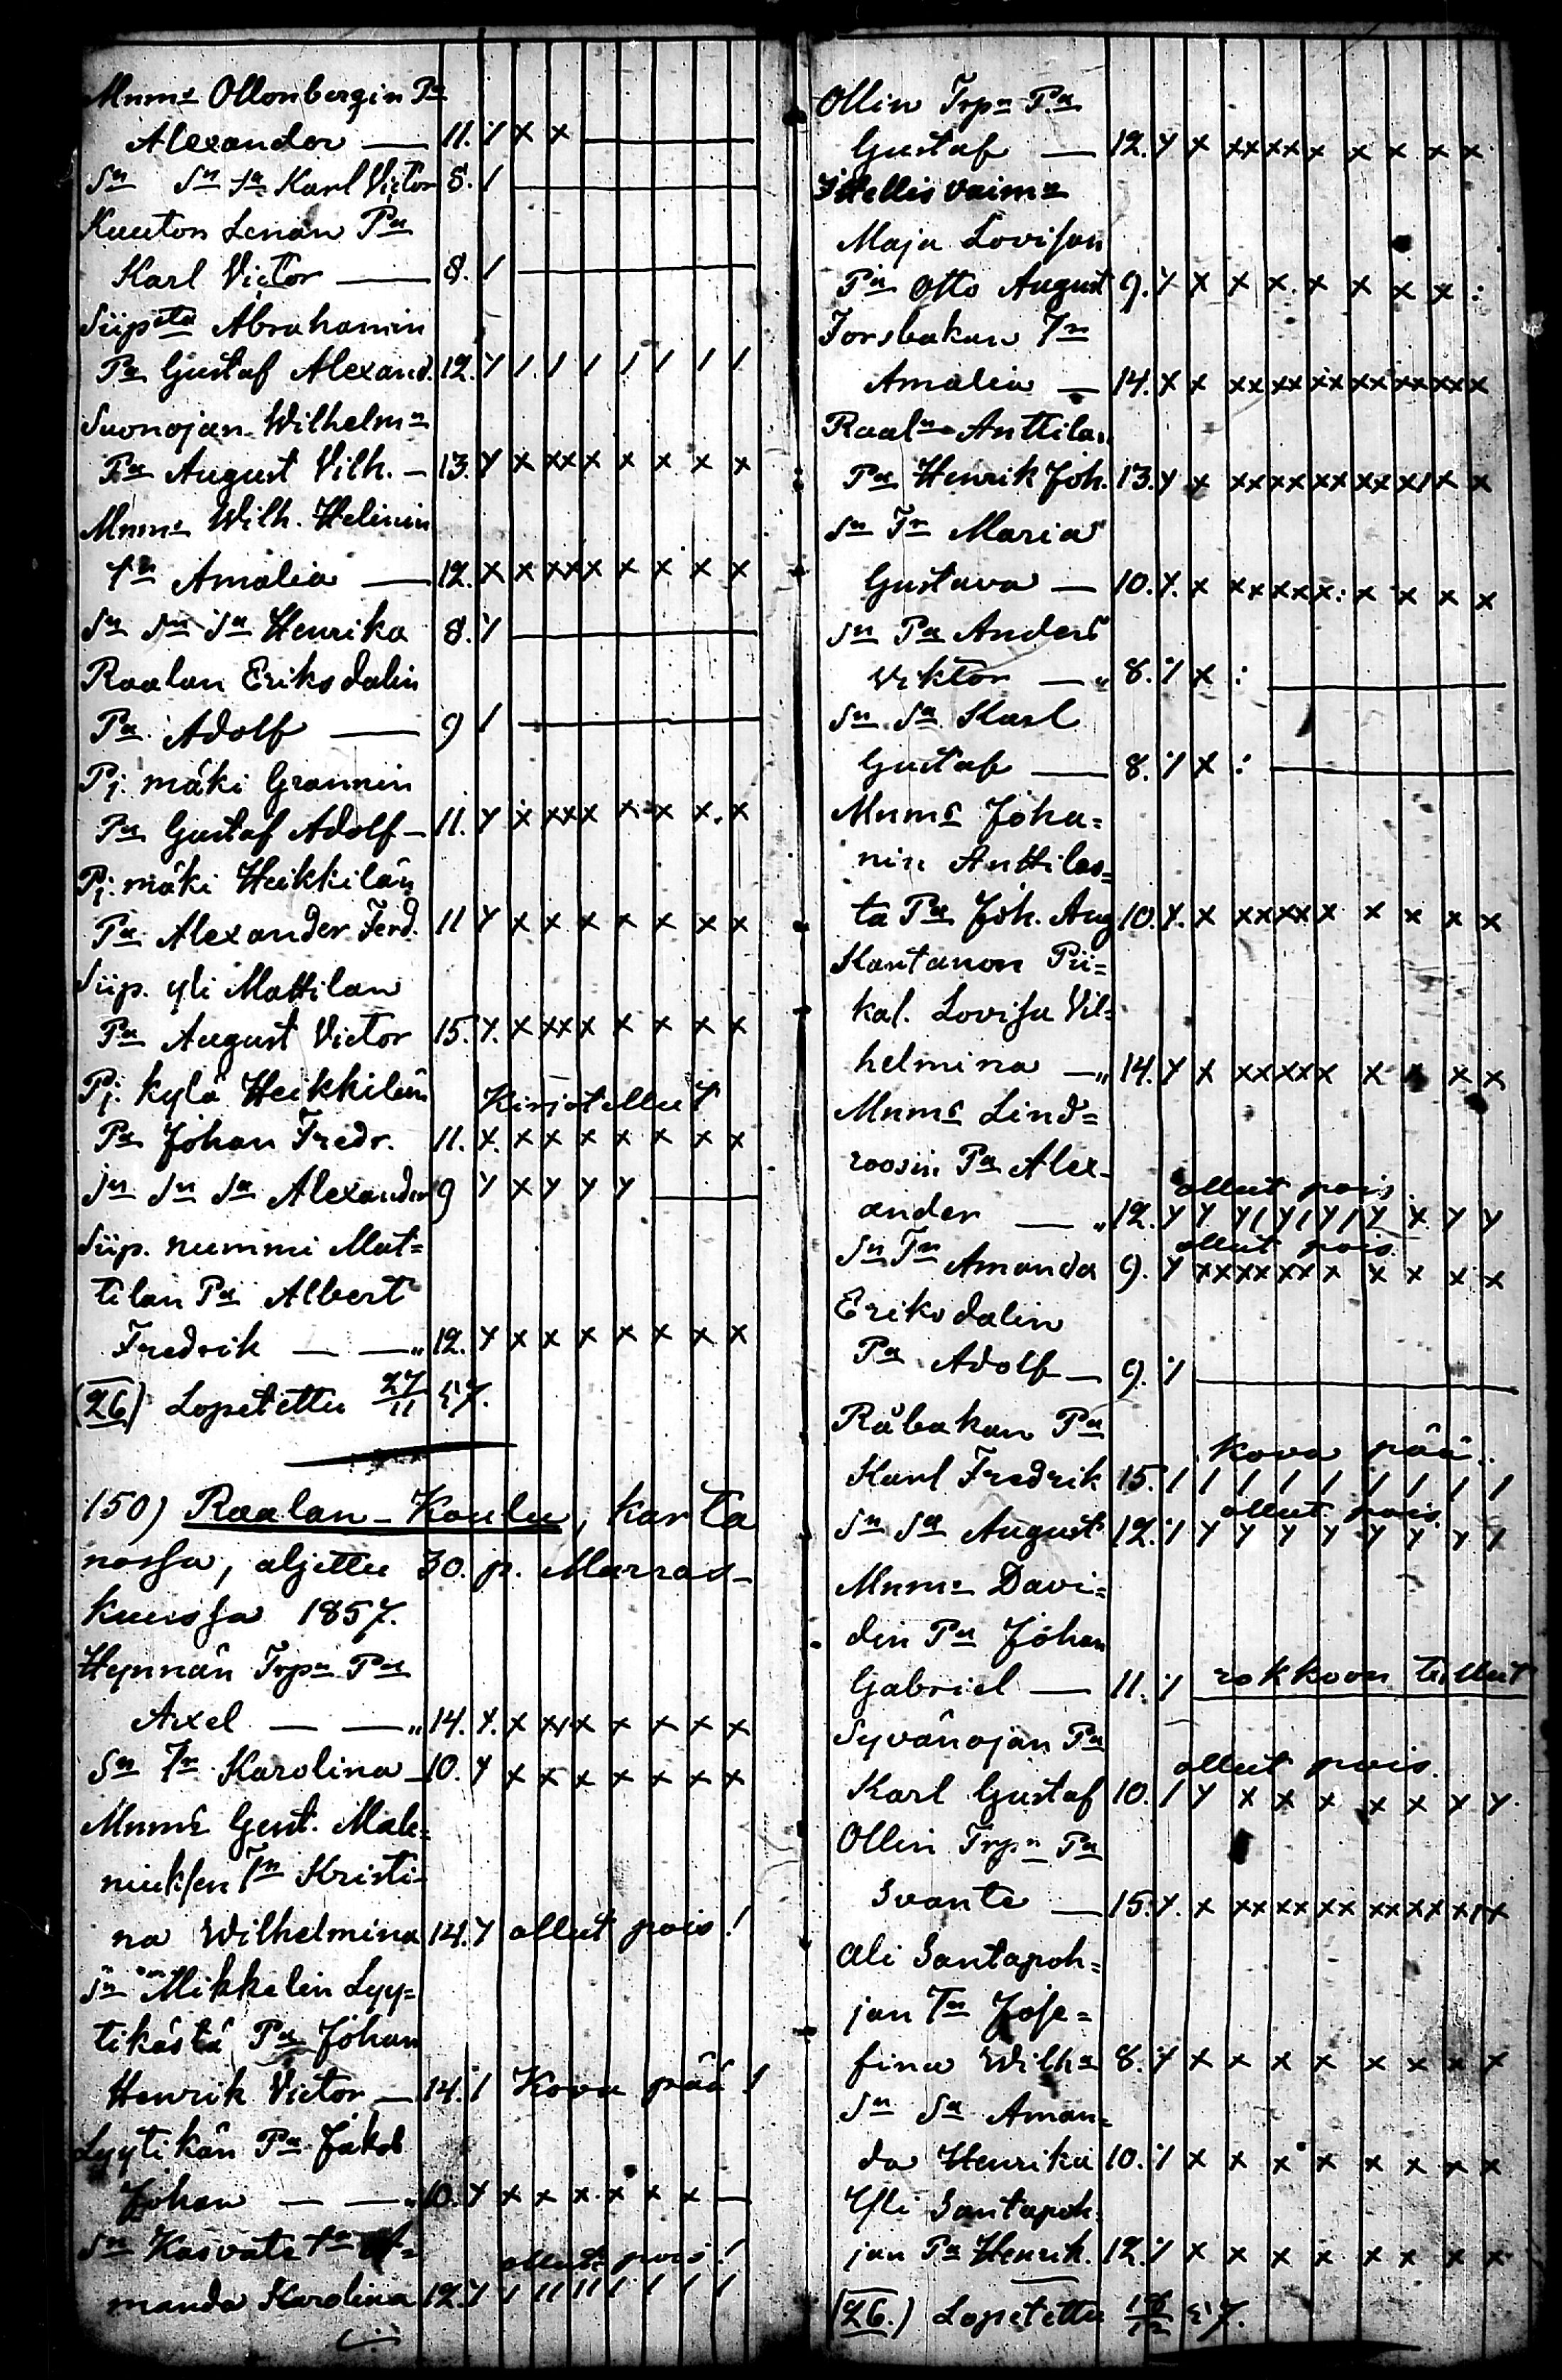 Mnms Ollonbergin Pa
Alexander — 11. y x x —
Sn Sn Sa Karl Victor 8. / —
Kuuton Lenan Pa
Karl Victor — 8. / —
Siipsta Abrahamin
Pa Gustaf Alexand. 12. y / / / / / / /
Suonojan Wilhelmn
Pa August Vilh. — 13. y x xx x x x x x
Mnms Wilh. Helinin
Tn Amalia — 12. x x xxx x x x x
Sn Sn Sa Henrika 8. y —
Raalan Eriksdalin
Pa Adolf — 9 / —
Pj. mäki Grannin
Pa Gustaf Adolf — 11. y x xxx x x x x
Pj. mäki Heikkilän
Pa Alexander Ferd. 11 y x x x x x x x
Siip. yli Mattilan
Pa August Victor 15. y. x xxx x x x x
Pj. kylä Heikkilän Kirjotellut
Pa Johan Fredr. 11. x. x x x x x x x
Sn Sn Sa Alexander 9 y x y y y —
Siip. nummi Mat=
tilan Pa Albert
Fredrik — — „ 12. y x x x x x x x
(26) Lopetettu 27/11 57.
150) Raalan-Koulu, karta
nossa, aljettu 30. p. Marras-
kuussa 1857.
Hynnän Trpn Pa
Axel — — „ 14. y. x xxx x x x x
Sn Tr Karolina — 10. y x x x x x x x
Mnms Gust. Mak-
niuksen Tn Kristi-
na Wilhelmina 14. y ollut pois!
Sn Mikkelin Lyy=
tikästä Pa Johan
Henrik Victor — 14. / Kova pää!
Lyytikän Pa Jakob
Johan — — „ 10. y x x x x x x —
Sn Kasvate Tn A=
ollut pois!
manda Karolina 12. y / // // / / / /
Ollin Trpn Pa
Gustaf — 12. y x xxxx x x x x x
Itellis vaimn
Maja Lovisan
Pa Otto August 9. y x x x x x x x :
Forsbakan Tn
Amalia — 14. x x xx xx xx xx xx xxx
Raaln Anttilan
Pa Henrik Joh. 13. y x xx xx xx xx x/x x
Sn Tn Maria
Gustava — 10. y. x xxxxx: x x x x
Sn Pa Anders
Viktor — „ 8. y x : —
Sn Sa Karl
Gustaf — 8. y x : —
Mnms Joha=
nin Anttilas=
ta Pa Joh. Aug 10. y. x xxxxx x x x x
Kantanon Pii=
kal. Lovisa Vil=
helmina — „ 14. y x xxxxx x x x x
Mnms Lind=
roosin Pa Alex-
ollut pois.
ander — „ 12. y y y/y/y/y x y y
ollut pois.
Sn Tn Amanda 9. y xxxxxxx x x x x
Eriksdalin
Pa Adolf — 9. y —
Råbakan Pa
kova pää.
Karl Fredrik 15. / / / / / / / / /
ollut pois.
Sn Sa August 12. y y y y y y y y /
Mnms Davi=
din Pa Johan
Gabriel — 11. y rokkoon tullut
Syvänojan Pa
ollut pois.
Karl Gustaf 10. / y x x x x x y y.
Ollin Trpn Pa
Svante — 15. y. x xx xx xx xx xx x/x
Ali Santapoh=
jan Tn Jose=
fina Wilhn 8. y x x x x x x x x
Sn Sa Aman=
da Henrika 10. y x x x x x x x x
Yli Santapoh
jan Pa Henrik. 12. y x x x x x x x x
(26.) Lopetettu 18/12 57.